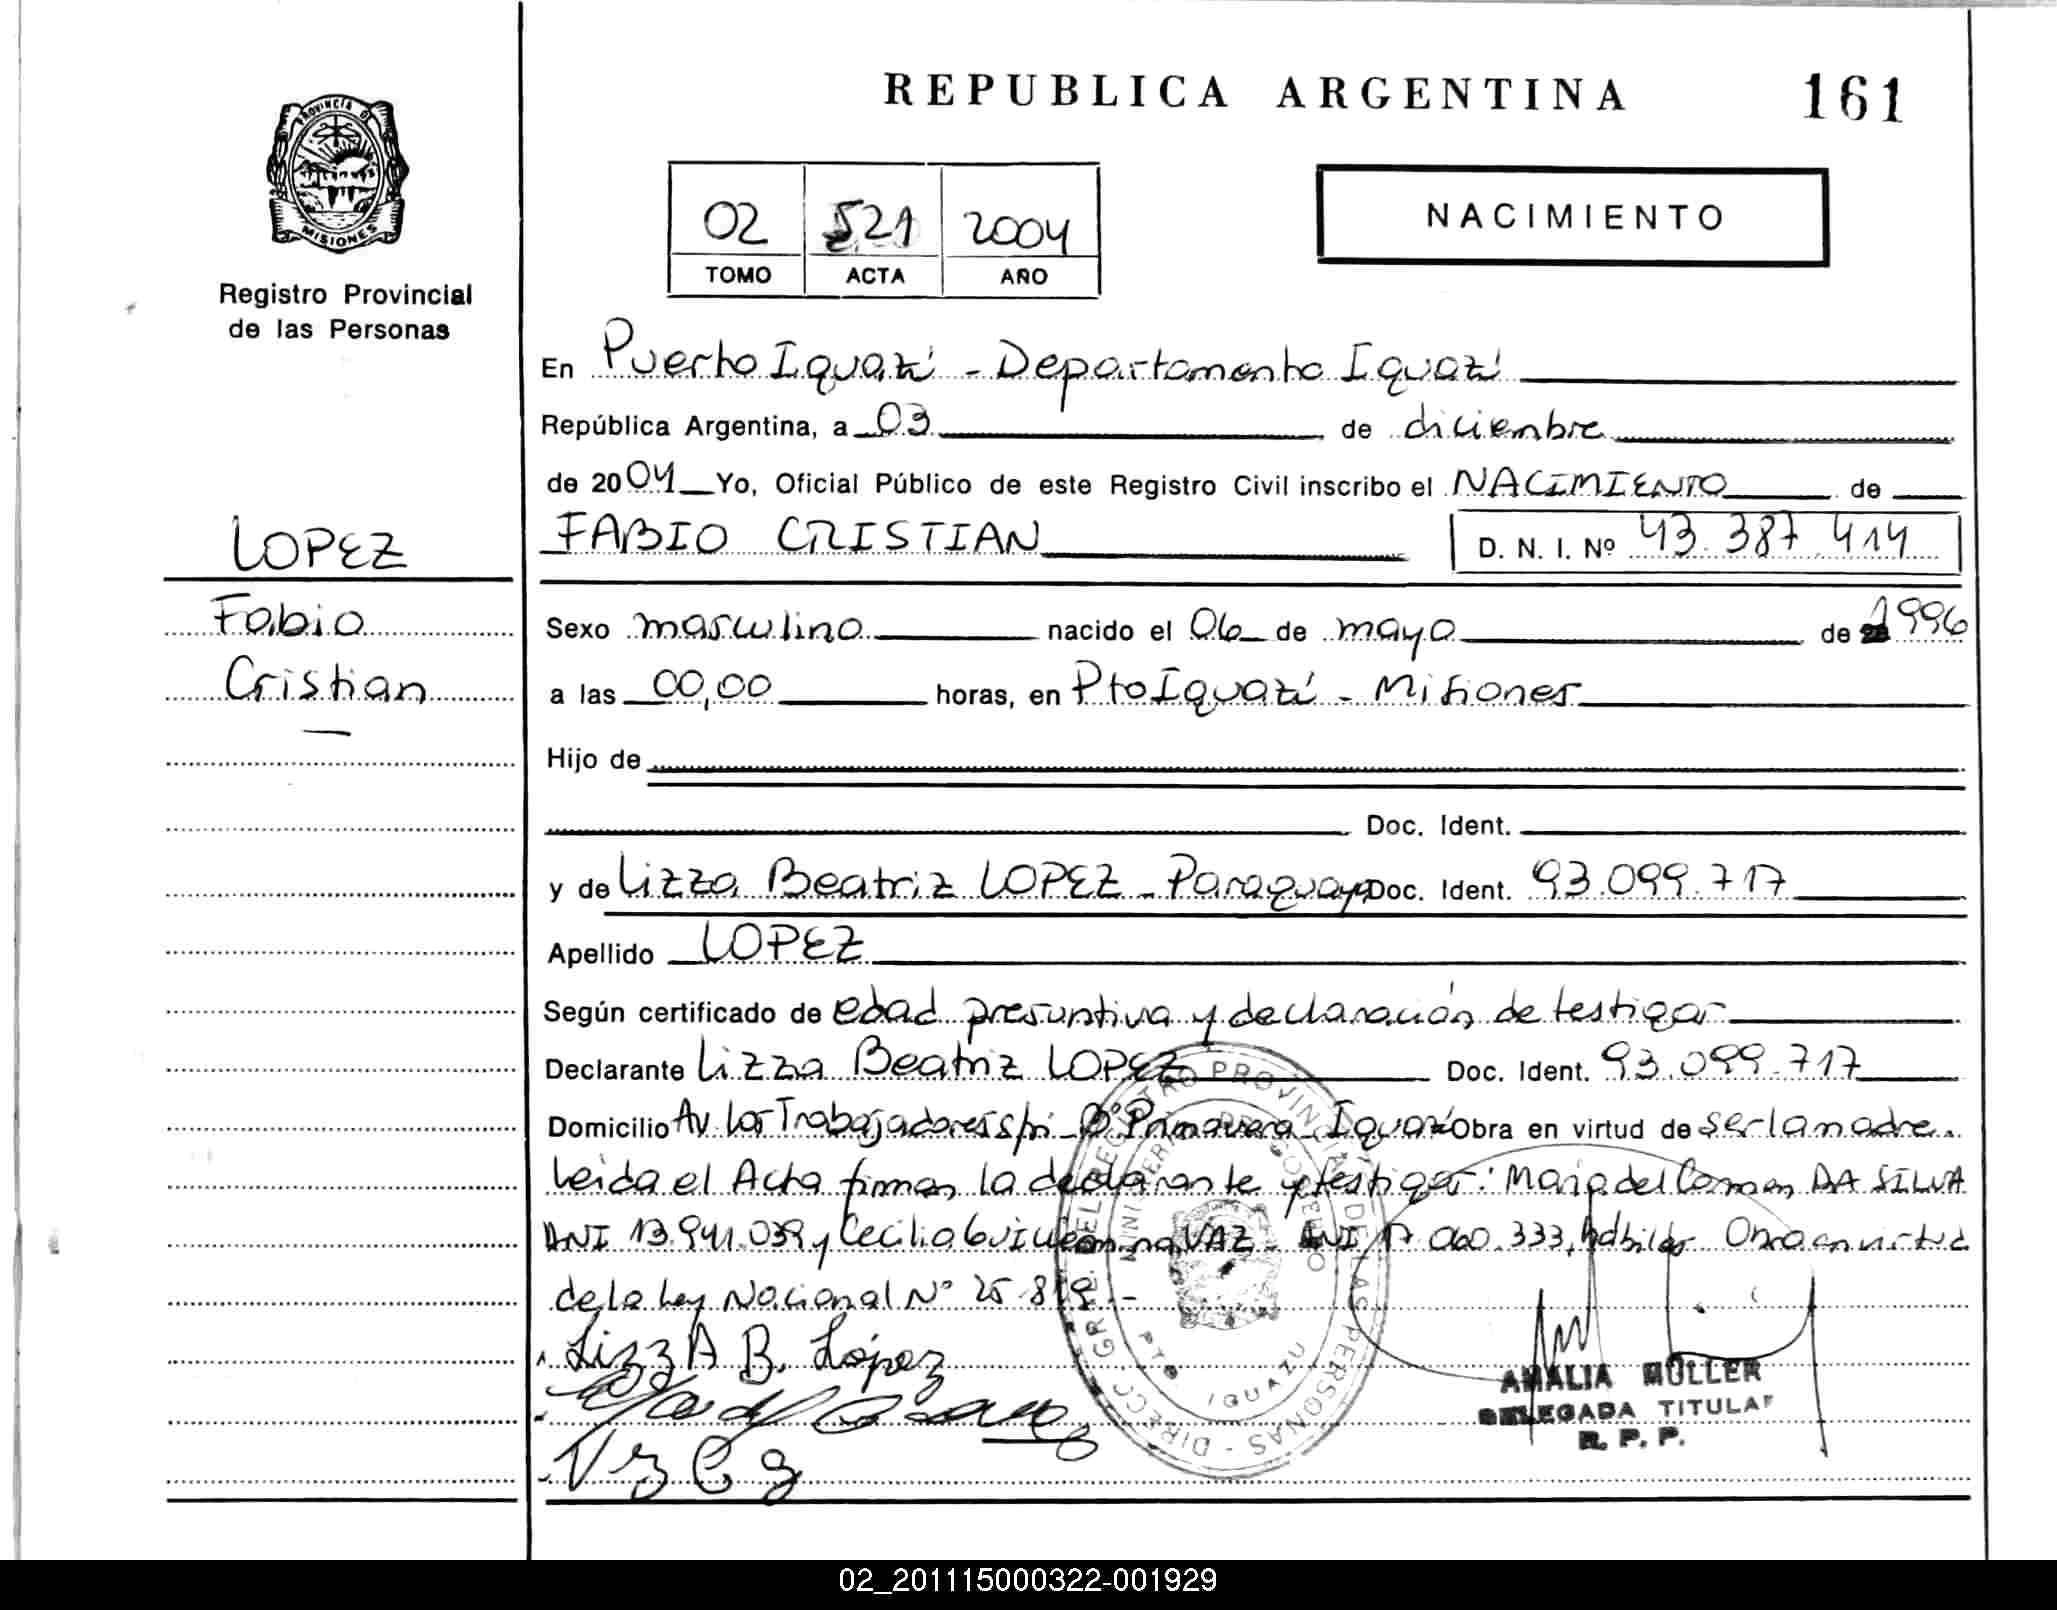 REPUBLICA ARGENTINA 161
PROVINCIA DE
MISIONES
Registro Provincial
de las Personas
02 521 2004
TOMO ACTA AÑO
NACIMIENTO
En Puerto Iguazú - Departamento Iguazú
República Argentina, a 03 de diciembre
de 2004 Yo, Oficial Público de este Registro Civil inscribo el NACIMIENTO de
FABIO CRISTIAN D. N. I. Nº 43.387.414
LOPEZ
Fabio
Cristian
Sexo masculino nacido el 06 de mayo de 1996
a las 00,00 horas, en Pto Iguazú - Misiones
Hijo de
Doc. Ident.
y de Lizza Beatriz LOPEZ - Paraguaya Doc. Ident. 93.099.717
Apellido LOPEZ
Según certificado de edad presuntiva y declaración de testigos
Declarante Lizza Beatriz LOPEZ Doc. Ident. 93.099.717
Domicilio Av. Los Trabajadores s/n - Bº Primavera - Iguazú Obra en virtud de ser la madre.
Leida el Acta firman la declarante y testigos: Maria del Carmen DA SILVA
DNI 13.941.039 y Cecilia VAZ - DNI 17.060.333, hábiles. Obra en virtud
de la Ley Nacional Nº 25.819.-
Lizza B. López
REGISTRO PROVINCIAL DE LAS PERSONAS - DIRECC. GRAL. DEL
MINISTERIO DE GOBIERNO
PTO. IGUAZU
AMALIA MULLER
DELEGADA TITULAR
R. P. P.
02_201115000322-001929